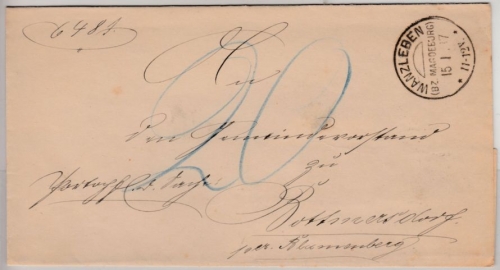 6481.
WANZLEBEN
(BZ. MAGDEBURG)
15 1 7
11-12V.
An
20
den Gemeindevorstand
zu
Portopfl. d. Sache.
Bottmersdorf.
per. Blumenberg